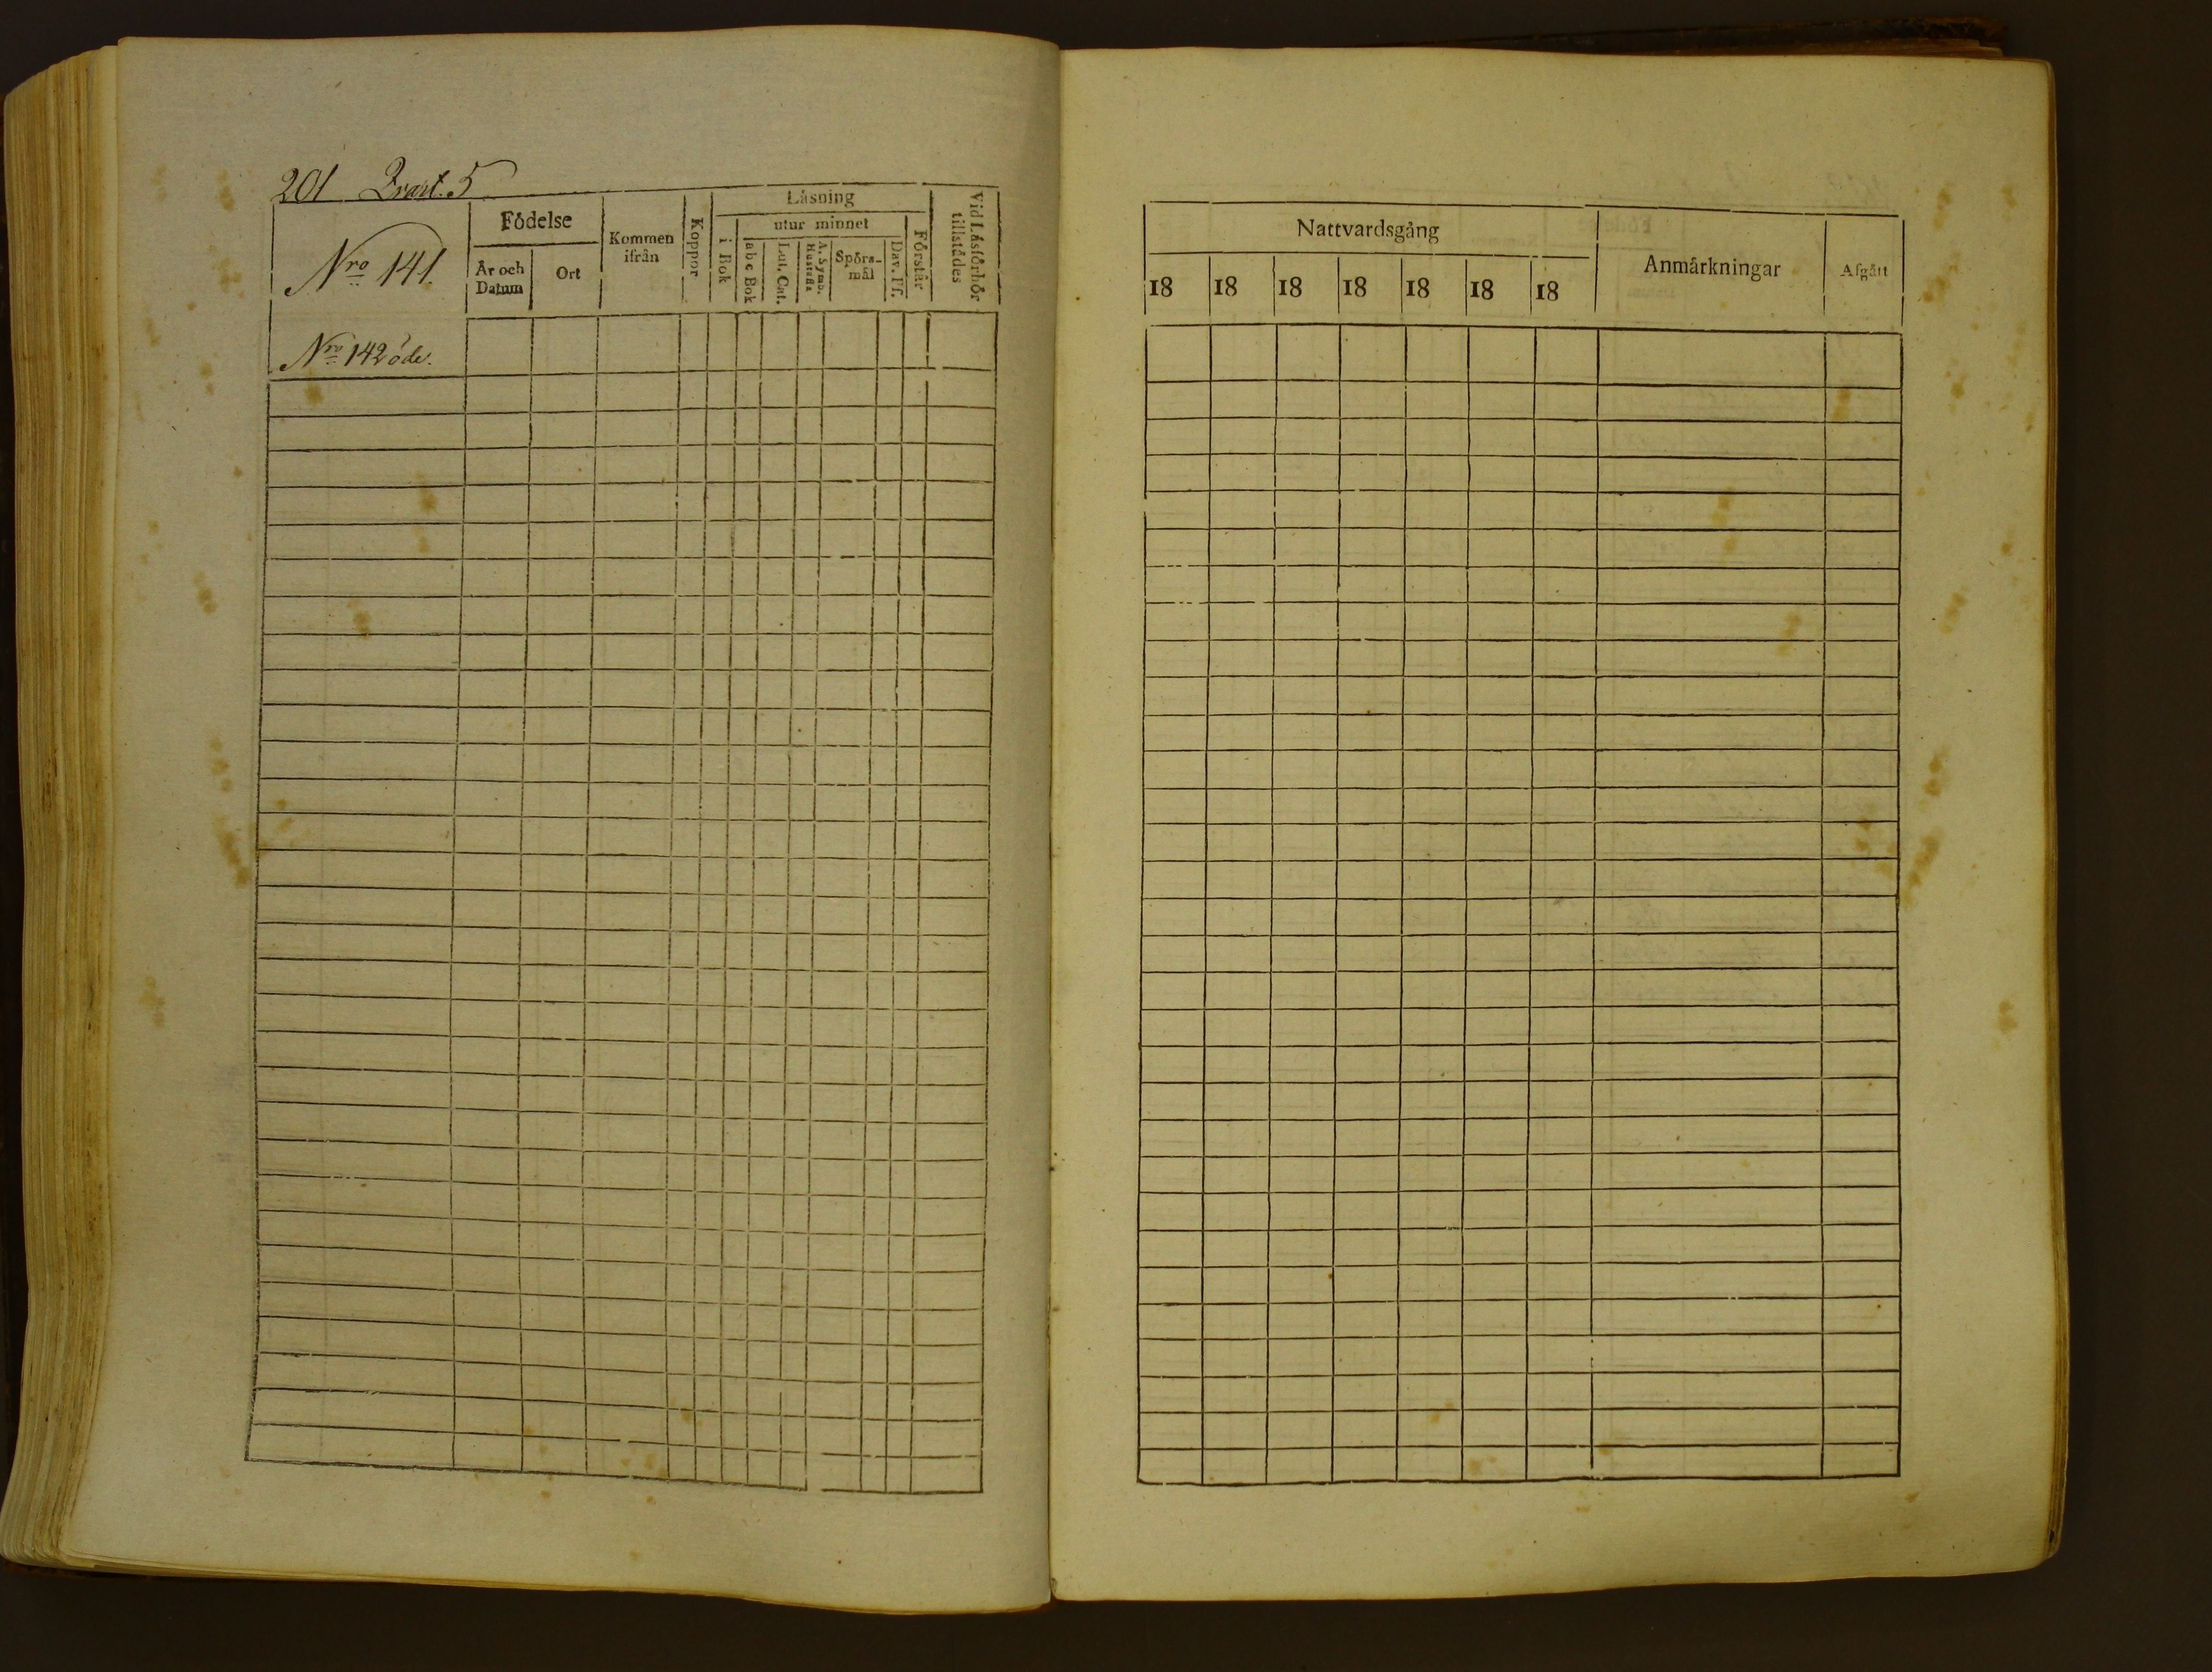 201 Qvart. 5
Nro 141.
Födelse
År och Datum
Ort
Kommen ifrån
Koppor
Läsning
i Bok
utur minnet
abc Bok
Lut. Cat.
A. Symb. Hustafla
Spörs-mål
Dav. Ps.
Förstår
Vid Läsförhör tillstädes
Nro 142 öde.
Nattvardsgång
18 18 18 18 18 18 18
Anmärkningar
Afgått